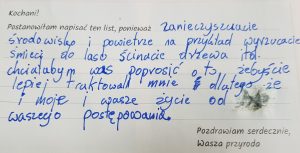 Kochani!
Postanowiłam napisać ten list, ponieważ zanieczyszczacie
środowisko i powietrze na przykład wyrzucacie
śmieci do lasu ścinacie drzewa itd.
chciałabym was poprosić o to, żebyście
lepiej traktowali mnie dlatego że
i moje i wasze życie od
waszego postępowania.
Pozdrawiam serdecznie,
Wasza przyroda